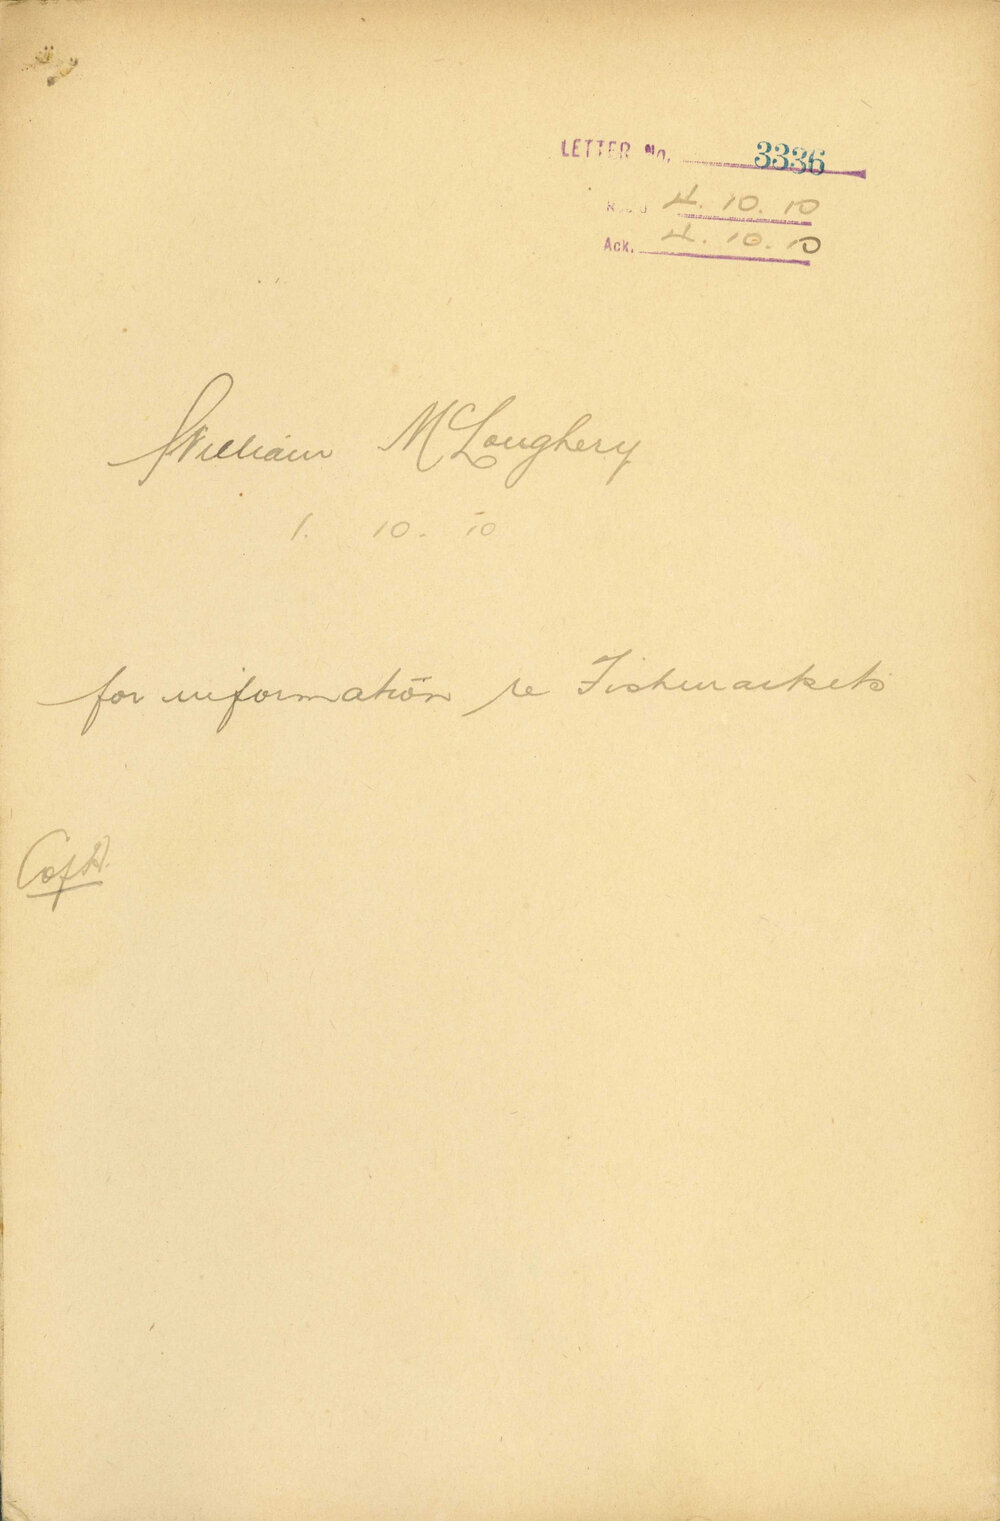 LETTER No. 3336
Rec'd 4. 10. 10
Ack. 4. 10. 10
William McLoughery
1. 10. 10
for information re Fishmarkets